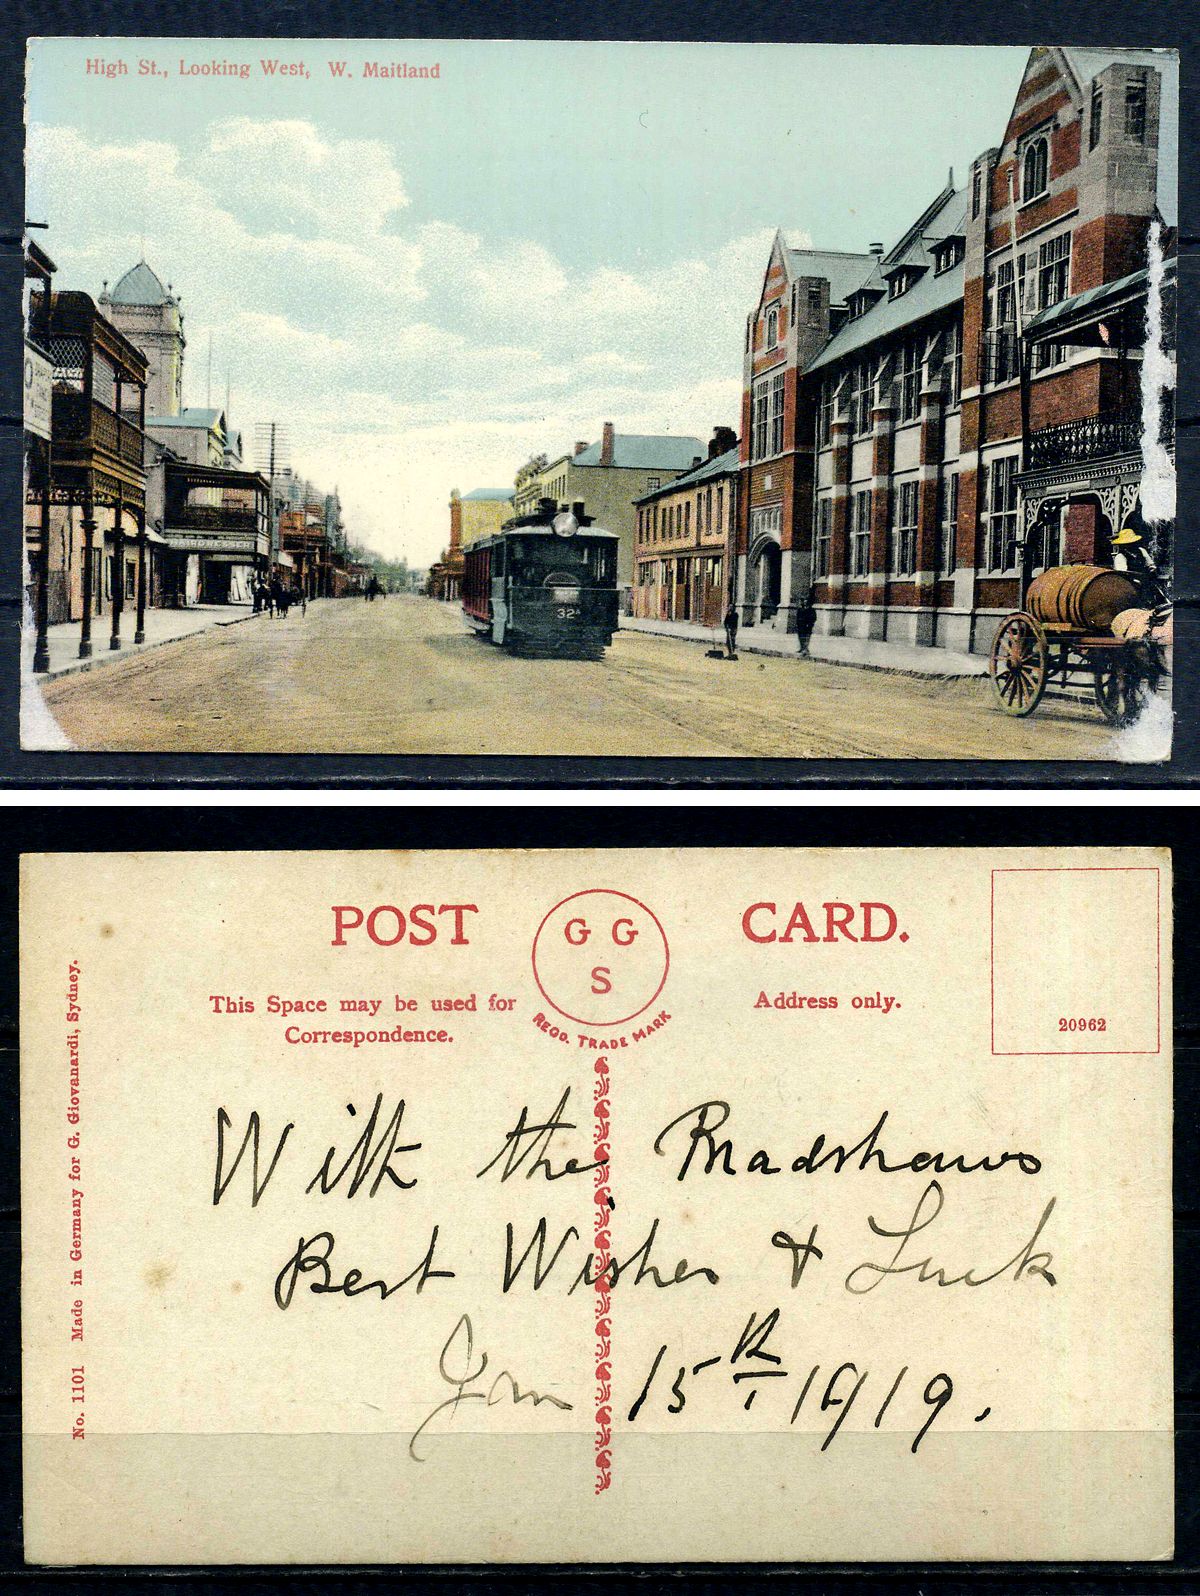 High St., Looking West, W. Maitland
32A
POST CARD.
G G
S
REGD. TRADE MARK
This Space may be used for
Correspondence.
Address only.
20962
No. 1101 Made in Germany for G. Giovanardi, Sydney.
With the Bradshaws
Best Wishes & Luck
Jan 15th 1919.